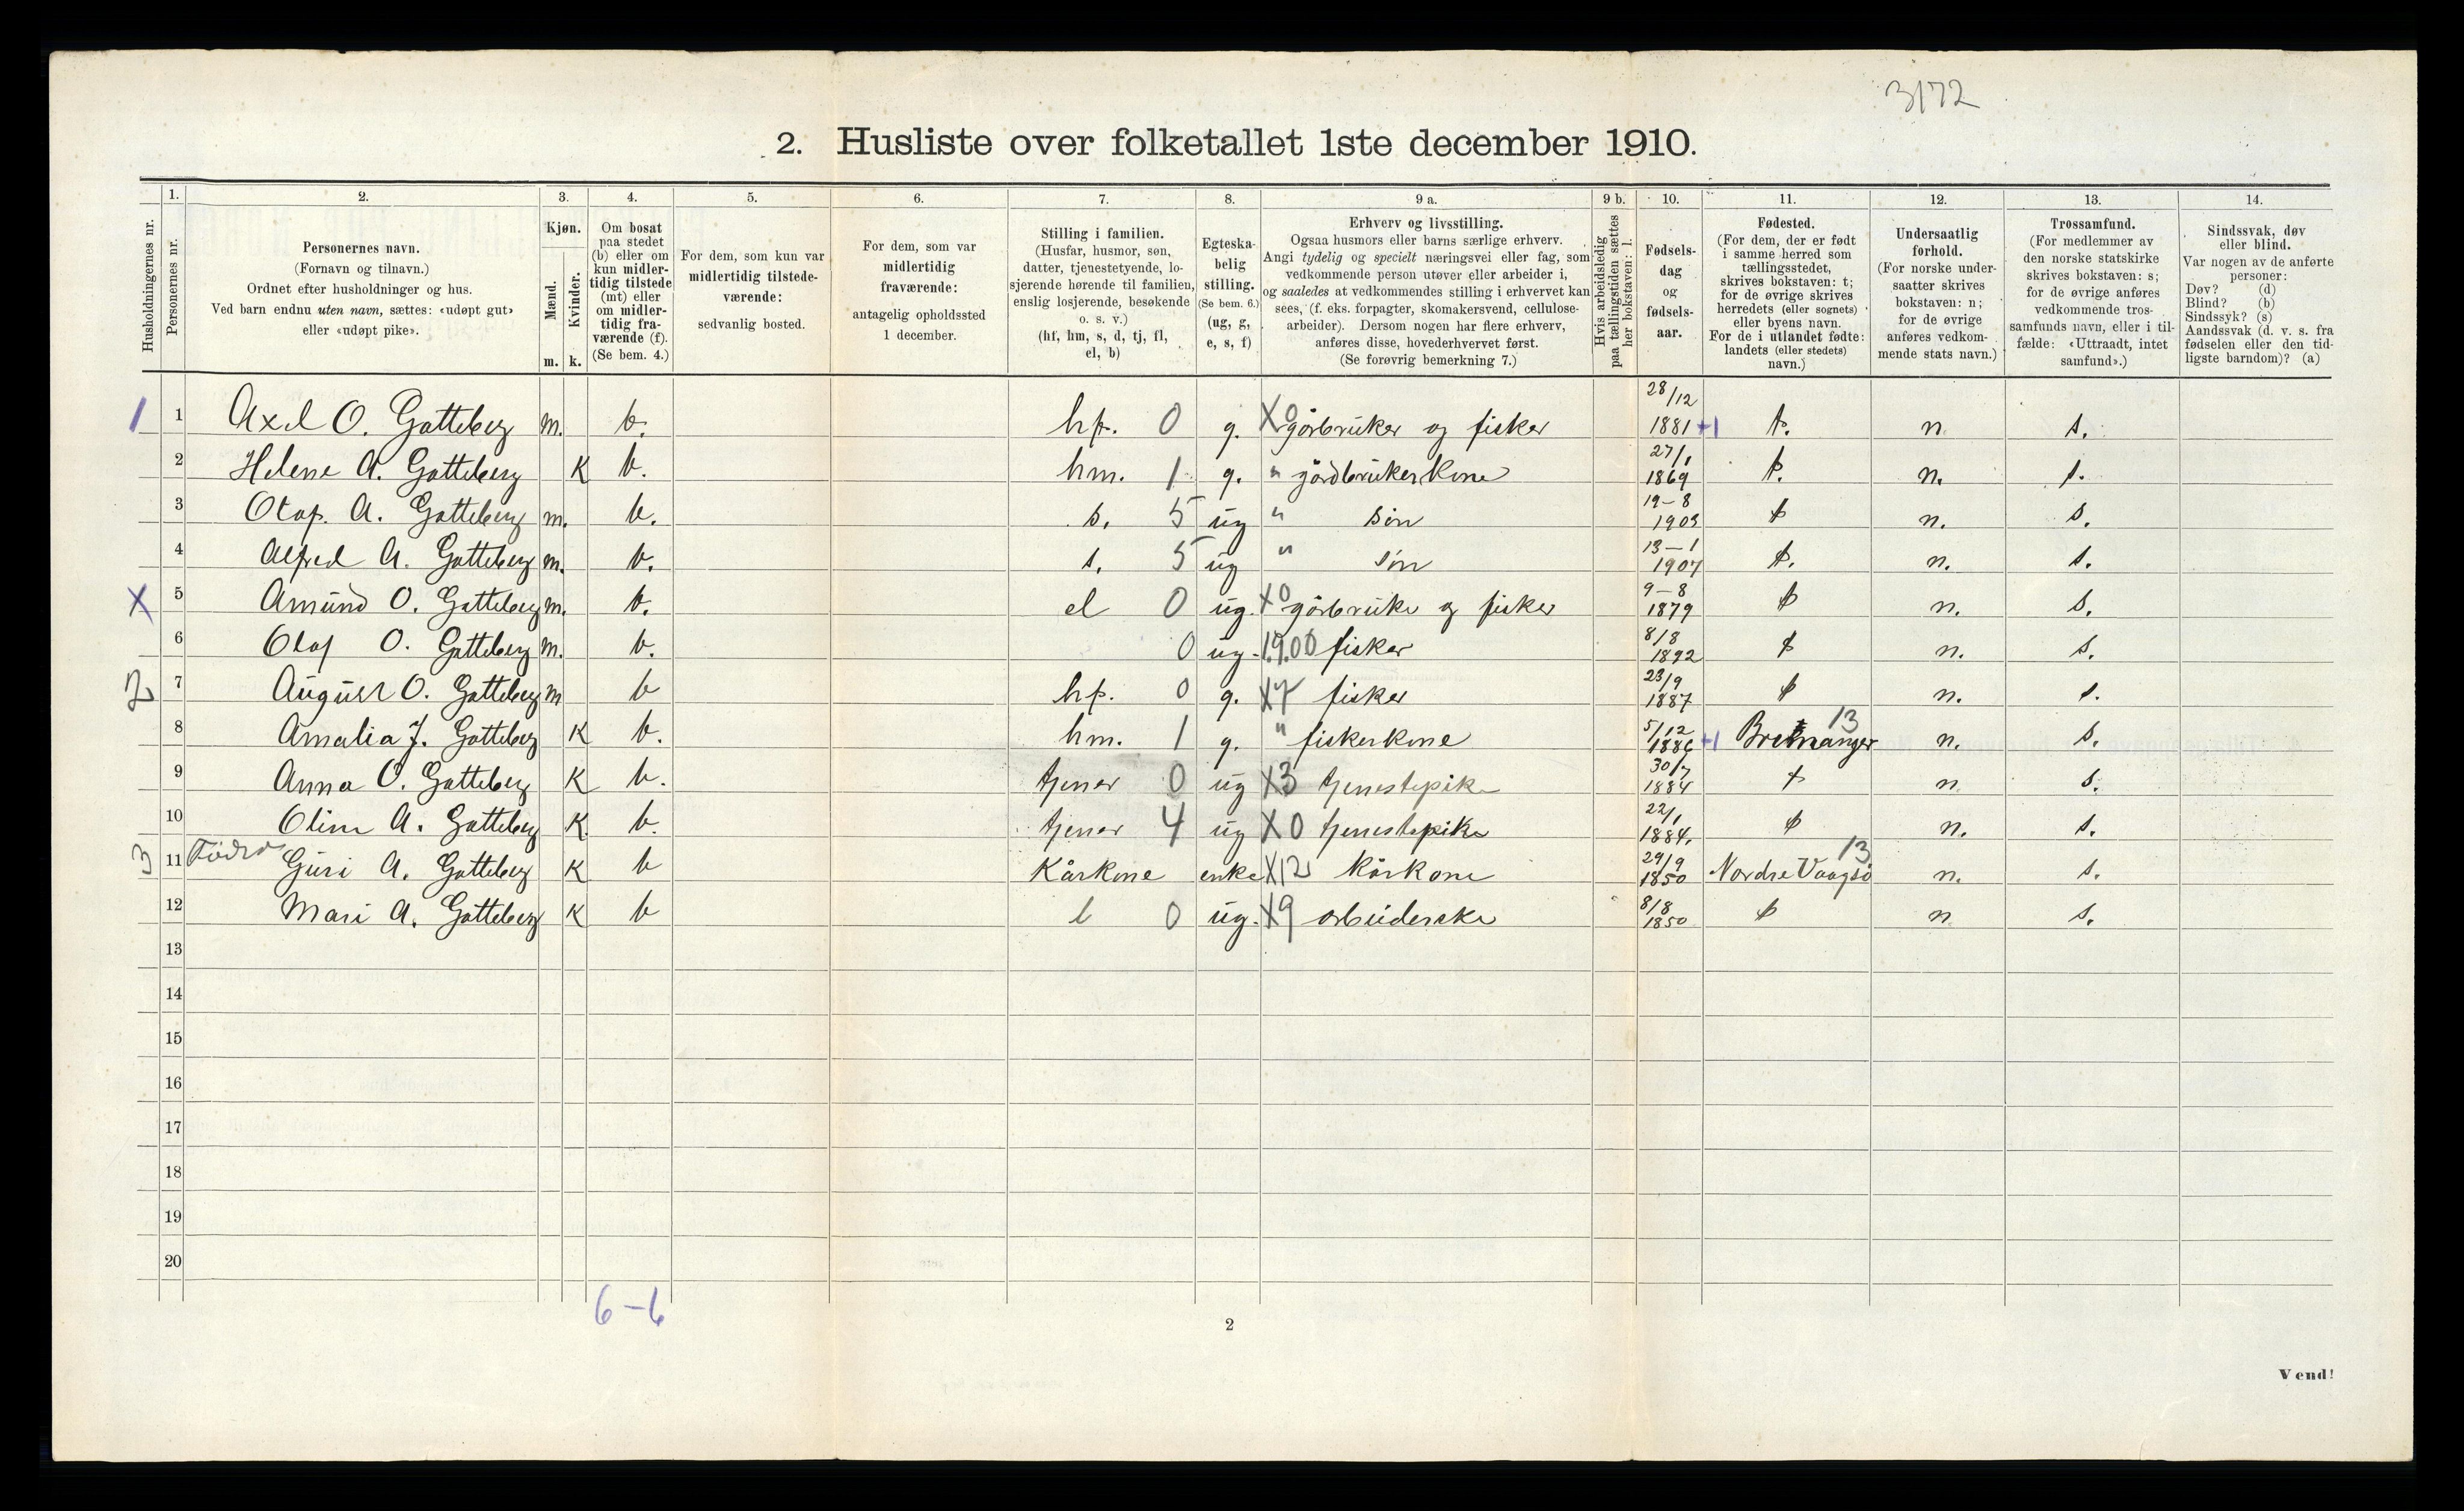 3172
2. Husliste over folketallet 1ste december 1910.
Husholdningernes nr.
1. Personernes nr.
2. Personernes navn.
(Fornavn og tilnavn.)
Ordnet efter husholdninger og hus.
Ved barn endnu uten navn, sættes: «udøpt gut»
eller «udøpt pike».
3. Kjøn.
Mænd. m.
Kvinder. k.
4. Om bosat
paa stedet
(b) eller om
kun midler-
tidig tilstede
(mt) eller
om midler-
tidig fra-
værende (f).
(Se bem. 4.)
5. For dem, som kun var
midlertidig tilstede-
værende:
sedvanlig bosted.
6. For dem, som var
midlertidig
fraværende:
antagelig opholdssted
1 december.
7. Stilling i familien.
(Husfar, husmor, søn,
datter, tjenestetyende, lo-
sjerende hørende til familien,
enslig losjerende, besøkende
o. s. v.)
(hf, hm, s, d, tj, fl,
el, b)
8. Egteska-
belig
stilling.
(Se bem. 6.)
(ug, g,
e, s, f)
9 a. Erhverv og livsstilling.
Ogsaa husmors eller barns særlige erhverv.
Angi tydelig og specielt næringsvei eller fag, som
vedkommende person utøver eller arbeider i,
og saaledes at vedkommendes stilling i erhvervet kan
sees, (f. eks. forpagter, skomakersvend, cellulose-
arbeider). Dersom nogen har flere erhverv,
anføres disse, hovederhvervet først.
(Se forøvrig bemerkning 7.)
9 b. Hvis arbeidsledig
paa tællingstiden sættes
her bokstaven: l.
10. Fødsels-
dag
og
fødsels-
aar.
11. Fødested.
(For dem, der er født
i samme herred som
tællingsstedet,
skrives bokstaven: t;
for de øvrige skrives
herredets (eller sognets)
eller byens navn.
For de i utlandet fødte:
landets (eller stedets)
navn.)
12. Undersaatlig
forhold.
(For norske under-
saatter skrives
bokstaven: n;
for de øvrige
anføres vedkom-
mende stats navn.)
13. Trossamfund.
(For medlemmer av
den norske statskirke
skrives bokstaven: s;
for de øvrige anføres
vedkommende tros-
samfunds navn, eller i til-
fælde: «Uttraadt, intet
samfund».)
14. Sindssvak, døv
eller blind.
Var nogen av de anførte
personer:
Døv? (d)
Blind? (b)
Sindssyk? (s)
Aandssvak (d. v. s. fra
fødselen eller den tid-
ligste barndom)? (a)
1 1 Axel O. Gotteberg m. b. hf. 0 g. X0 gårbruker og fisker 28/12 1881 +1 t. n s.
2 Helene A. Gotteberg K b. hm. 1 g. " gårdbrukerkone 27/1 1869 t. n. s.
3 Olaf. A. Gotteberg m. b. s. 5 ug " søn 19-8 1903 t n. s.
4 Alfred A. Gotteberg m. b. s. 5 ug " søn 13-1 1907 t. n. s.
X 5 Amund O. Gotteberg m. b. el 0 ug. X0 gårbruke og fisker 9-8 1879 t n. s.
6 Olaf O. Gotteberg m. b. 0 ug. 1.9.00 fisker 8/8 1892 t n. s.
2 7 August O. Gotteberg m b hf. 0 g. X7 fisker 23/9 1887 t n. s.
8 Amalia J. Gotteberg K b. hm. 1 g. " fiskerkone 5/12 1886 +1 Bremanger 13 n. s.
9 Anna O. Gotteberg K b. tjener 0 ug X3 tjenestepike 30/7 1884 t n s.
10 Oline A. Gotteberg K b. tjener 4 ug X0 tjenestepike 22/1 1884. t n. s.
3 11 Fødra Guri A. Gotteberg K b Kårkone enke X12 kårkone 29/9 1850 Nordre Vaagsø 13 n. s.
12 Mari A. Gotteberg K b l 0 ug. X9 arbeiderske 8/8 1850 t n s.
13
14
15
16
17
18
19
20
6-6
2
Vend!